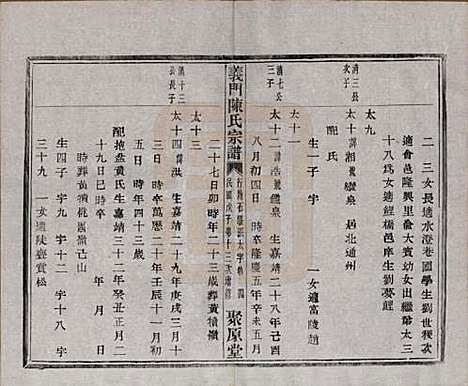 二 三女長適水澄巷國學生劉世稷次
適會邑隆興里倫大賓幼女出繼第太三
十八爲女適鯉橋邑庠生劉夢鯉
太九
清三公
次子
太十 諱湘 號蠻泉 居北通州
配 氏
生一子 字 一女適富陵趙
太十一
清七公
三子
太十二 諱浩 號鑑泉 生嘉靖二十八年己酉
八月初四日 時卒隆慶五年辛未五月
義門陳氏宗譜
聚原堂
二十七卯時年二十三歲葬黄楨嶺
太十三
清十三
公長子
太十四 諱洪 生嘉靖二十九年庚戌三月十
三日 時卒萬曆二十年壬辰十一月初
六日 時年四十三歲
配抱盎黄氏生嘉靖三十二年癸丑正月二
十九日巳時卒 年 月 日
時葬黄楨桃園嶺己山
生四子 字十二 字十八 字
三十九 一女適陡亹賞松